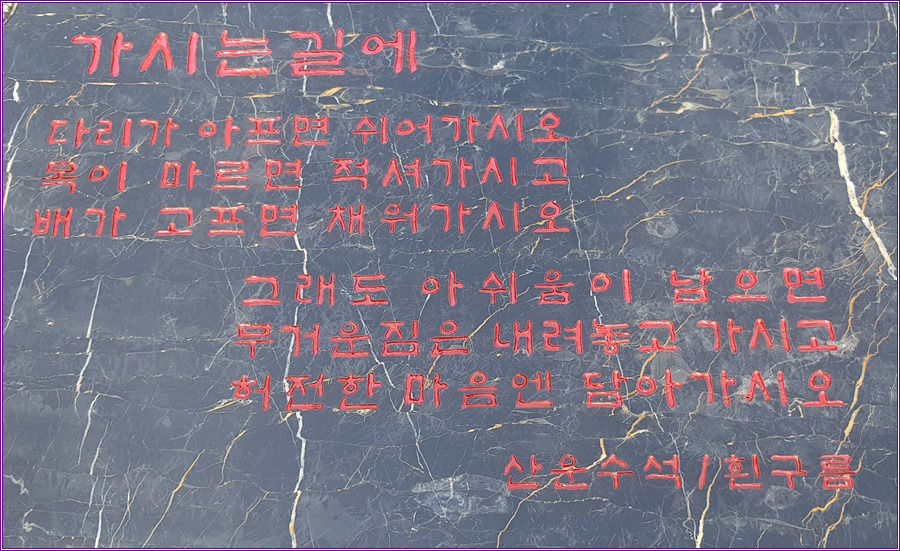 가시는길에
다리가 아프면 쉬어가시오
목이 마르면 적셔가시고
배가 고프면 채워가시오
그래도 아쉬움이 남으면
무거운짐은 내려놓고 가시고
허전한 마음엔 담아가시오
산운수석/흰구름